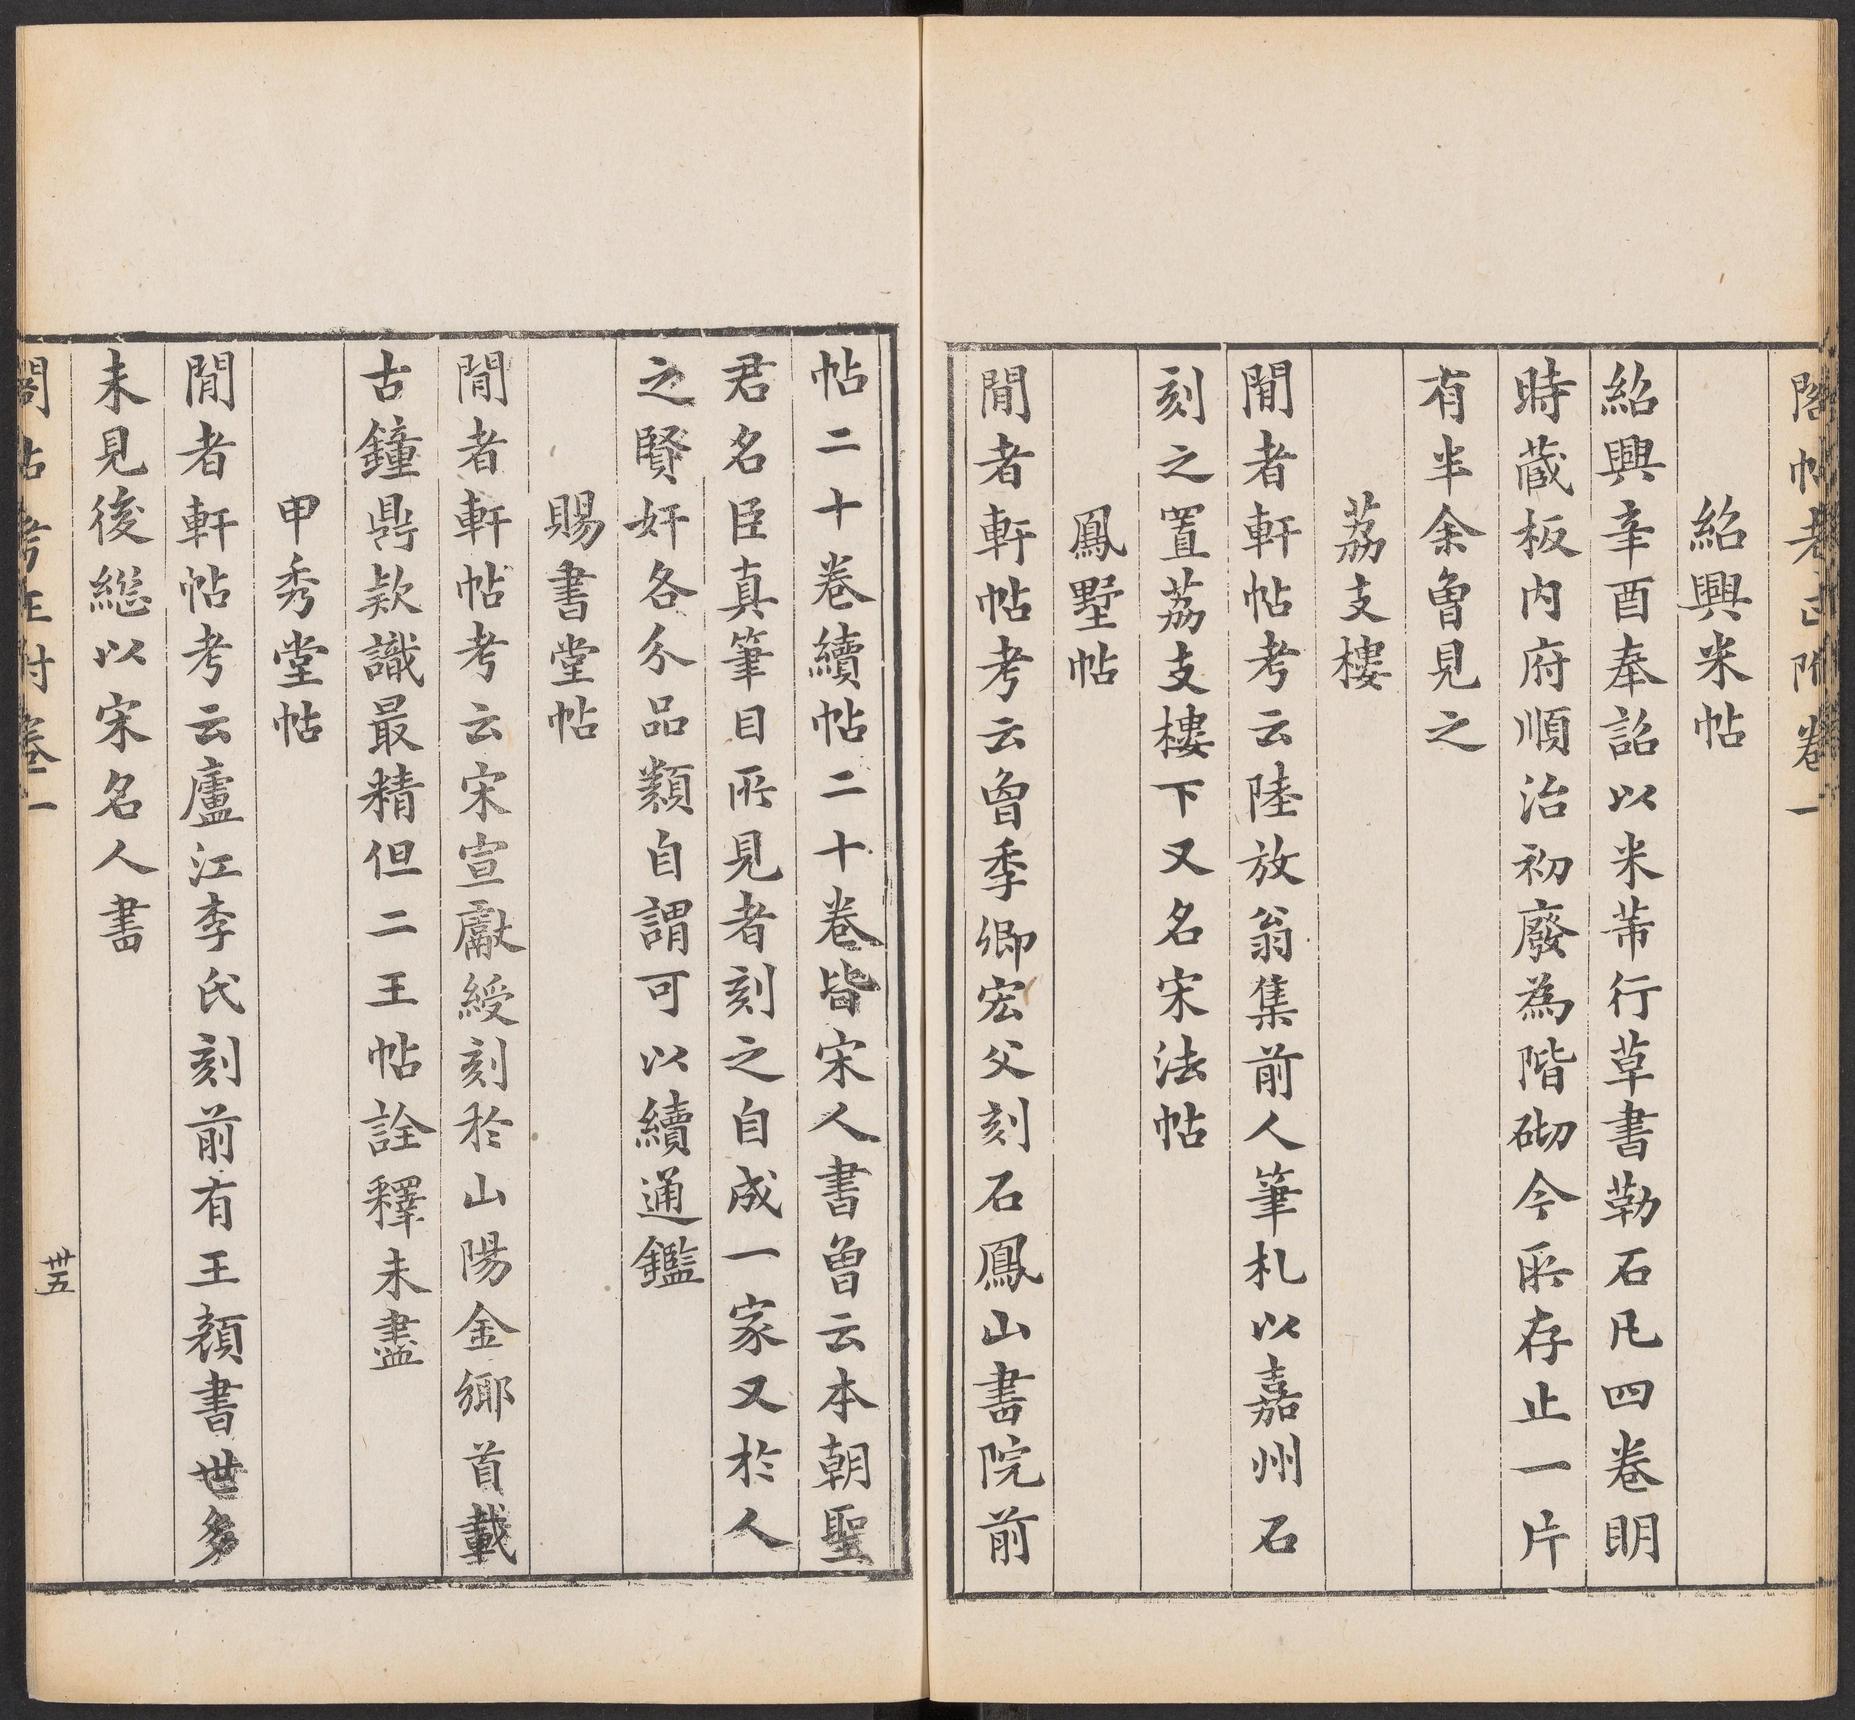 紹興米帖
紹興辛酉奉詔以米芾行草書勒石凡四卷明
時蔵板内府順治初廢為階砌今所存止一片
有半余曾見之
荔支樓
閒者軒帖考云陸放翁集前人筆札以嘉州石
刻之置荔支樓下又名宋法帖
鳳墅帖
閒者軒帖考云曾季卿宏父刻石鳳山書院前
帖二十卷續帖二十卷皆宋人書曾云本朝聖
君名臣真筆目所見者刻之自成一家又於人
之賢奸各分品類自謂可以續通鑑
賜書堂帖
閒者軒帖考云宋宣獻綬刻於山陽金鄉首載
古鐘鼎款識最精但二王帖詮釋未盡
甲秀堂帖
閒者軒帖考云廬江李氏刻前有王顏書世多
未見後總以宋名人書
閣帖考正附 卷一
卅五